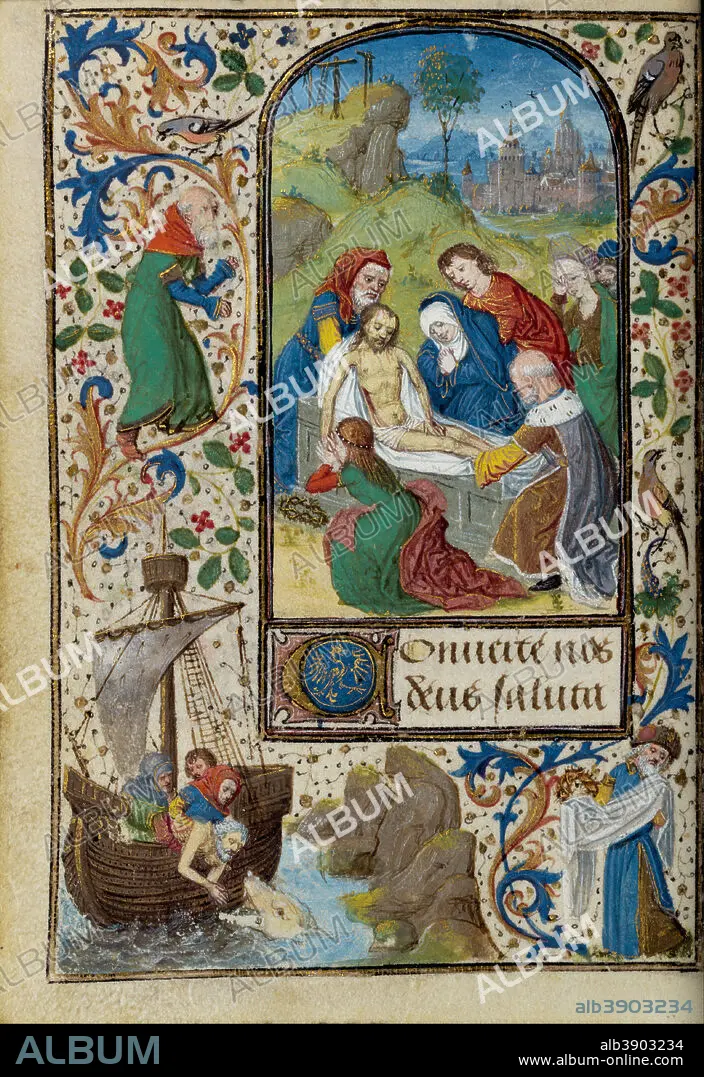 COnuerte nos
deus saluta
alb3903234
ALBUM
alb3903234
www.album-online.com